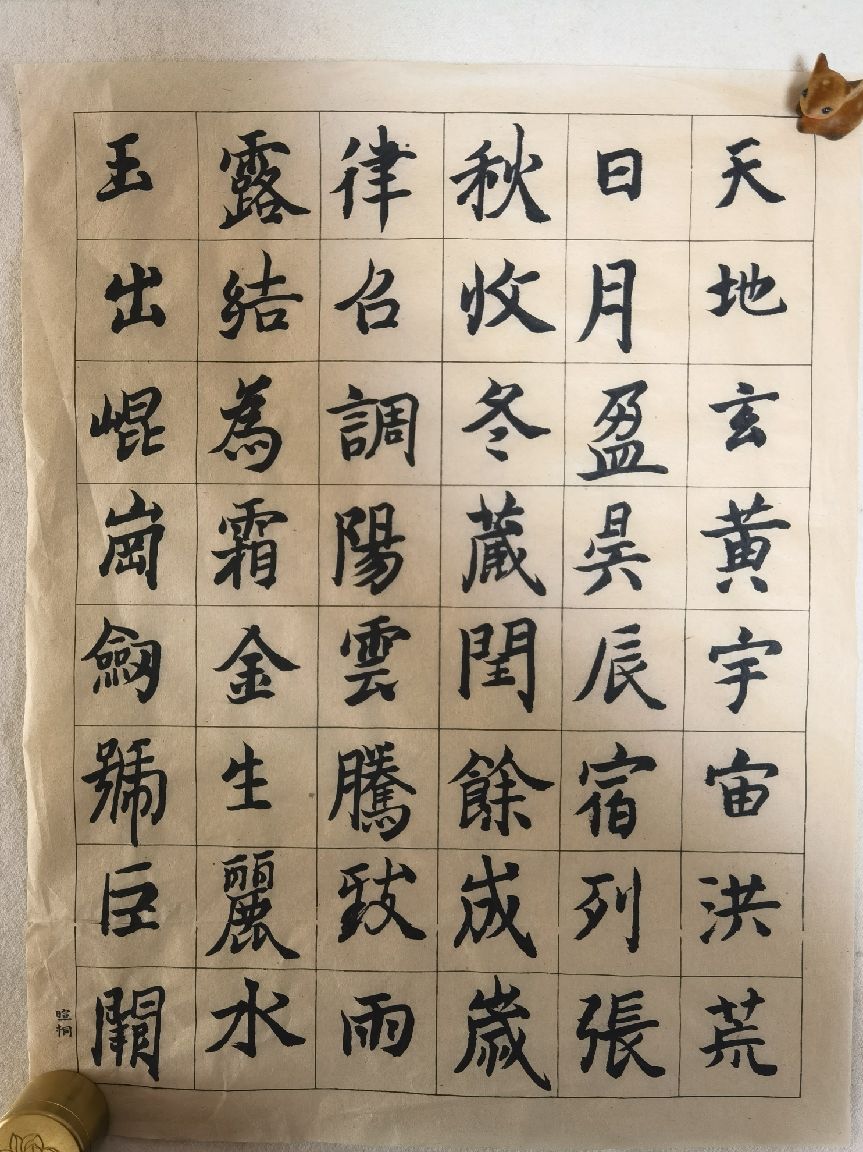 天地玄黄宇宙洪荒
日月盈昃辰宿列張
秋收冬蔵閏餘成歲
律召調陽雲騰致雨
露結為霜金生麗水
玉出崐崗劔號巨闕
暄桐